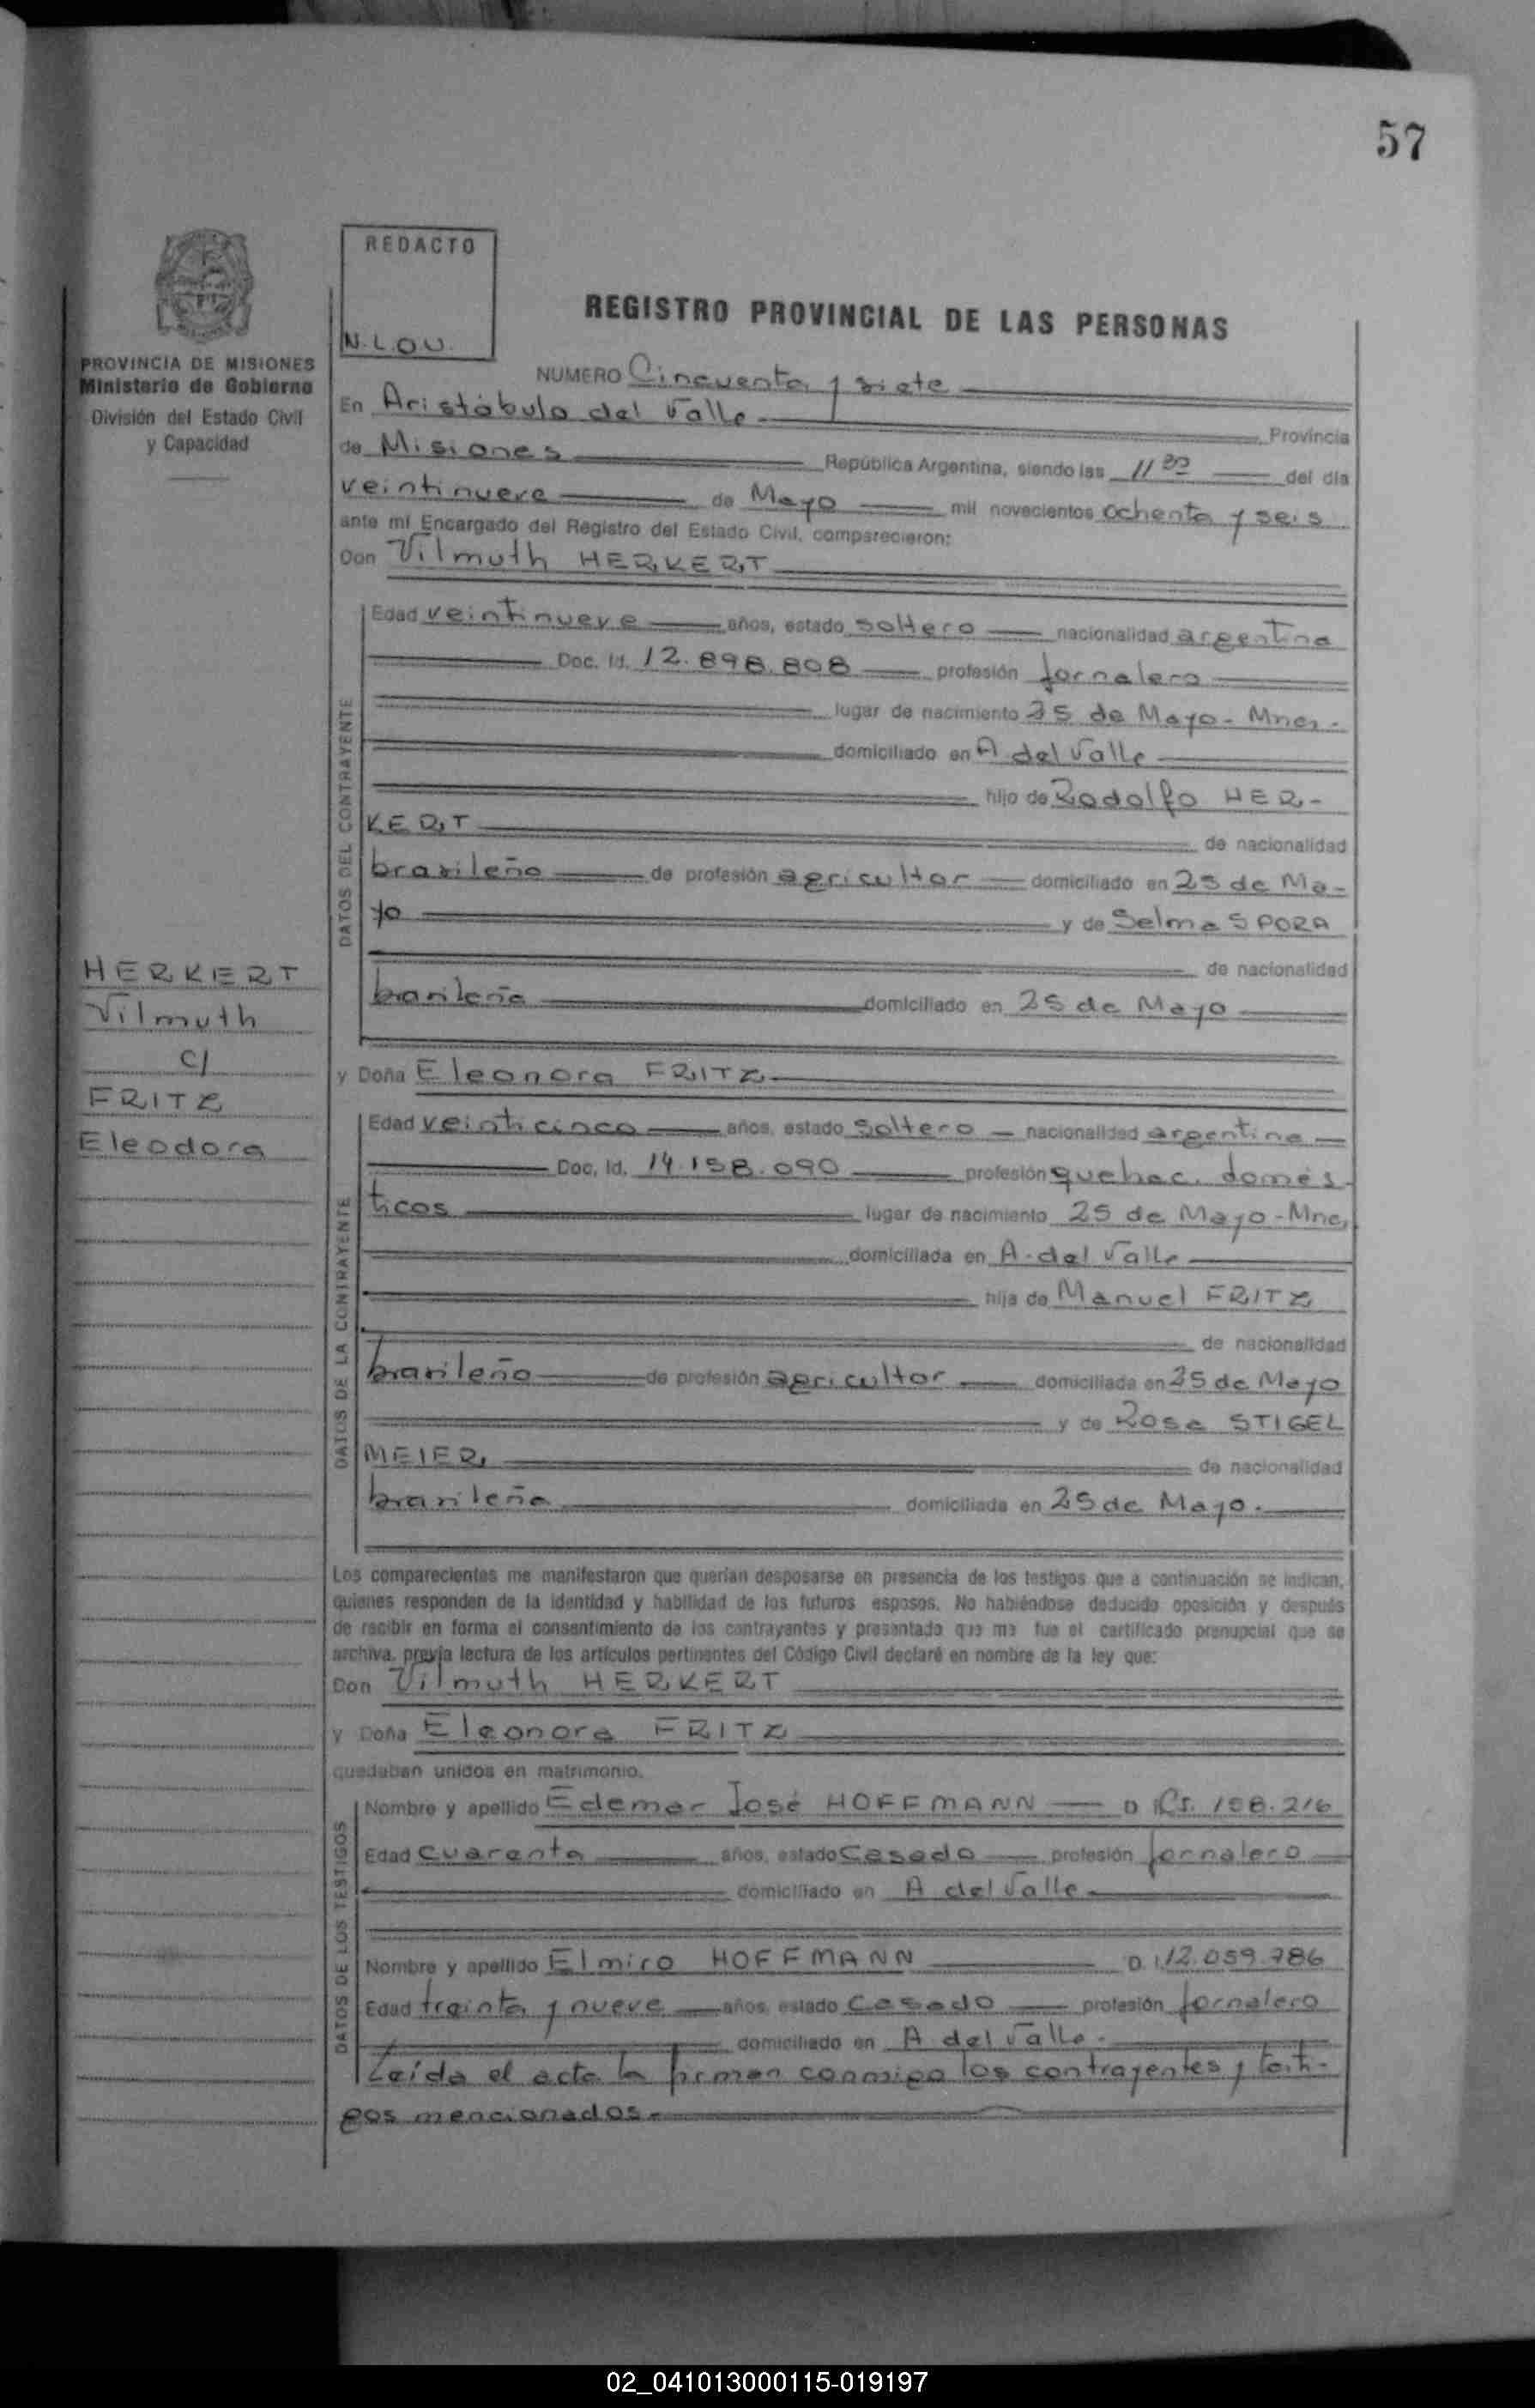 57
REDACTO
N.L.O.U.
PROVINCIA DE MISIONES
Ministerio de Gobierno
División del Estado Civil
y Capacidad
REGISTRO PROVINCIAL DE LAS PERSONAS
NUMERO Cincuenta y siete
En Aristóbulo del Valle Provincia
de Misiones República Argentina, siendo las 11 00 del día
veintinueve de Mayo mil novecientos ochenta y seis
ante mí Encargado del Registro del Estado Civil, comparecieron:
Don Vilmuth HERKERT
DATOS DEL CONTRAYENTE
Edad veintinueve años, estado soltero nacionalidad argentina
Doc. Id. 12.898.808 profesión jornalero
lugar de nacimiento 25 de Mayo - Mnes.
domiciliado en A del Valle
hijo de Rodolfo HER-
KERT de nacionalidad
brasileño de profesión agricultor domiciliado en 25 de Ma-
yo y de Selma SPORA
de nacionalidad
brasileña domiciliado en 25 de Mayo
HERKERT
Vilmuth
c/
FRITZ
Eleodora
y Doña Eleonora FRITZ
DATOS DE LA CONTRAYENTE
Edad veinticinco años, estado soltero nacionalidad argentina
Doc. Id. 14.158.090 profesión quehac. domés-
ticos lugar de nacimiento 25 de Mayo - Mnes
domiciliada en A. del Valle
hija de Manuel FRITZ
de nacionalidad
brasileño de profesión agricultor domiciliada en 25 de Mayo
y de Rosa STIGEL
MEIER de nacionalidad
brasileña domiciliada en 25 de Mayo.
Los comparecientes me manifestaron que querían desposarse en presencia de los testigos que a continuación se indican,
quienes responden de la identidad y habilidad de los futuros esposos. No habiéndose deducido oposición y después
de recibir en forma el consentimiento de los contrayentes y presentado que me fue el certificado prenupcial que se
archiva, previa lectura de los artículos pertinentes del Código Civil declaré en nombre de la ley que:
Don Vilmuth HERKERT
y Doña Eleonora FRITZ
quedaban unidos en matrimonio.
DATOS DE LOS TESTIGOS
Nombre y apellido Edemar José HOFFMANN D 158.216
Edad cuarenta años, estado Casado profesión jornalero
domiciliado en A del Valle
Nombre y apellido Elmiro HOFFMANN D. I. 12.059.786
Edad treinta y nueve años estado Casado profesión jornalero
domiciliado en A del Valle.
Leída el acta la firman conmigo los contrayentes y testi-
gos mencionados.
02_041013000115-019197